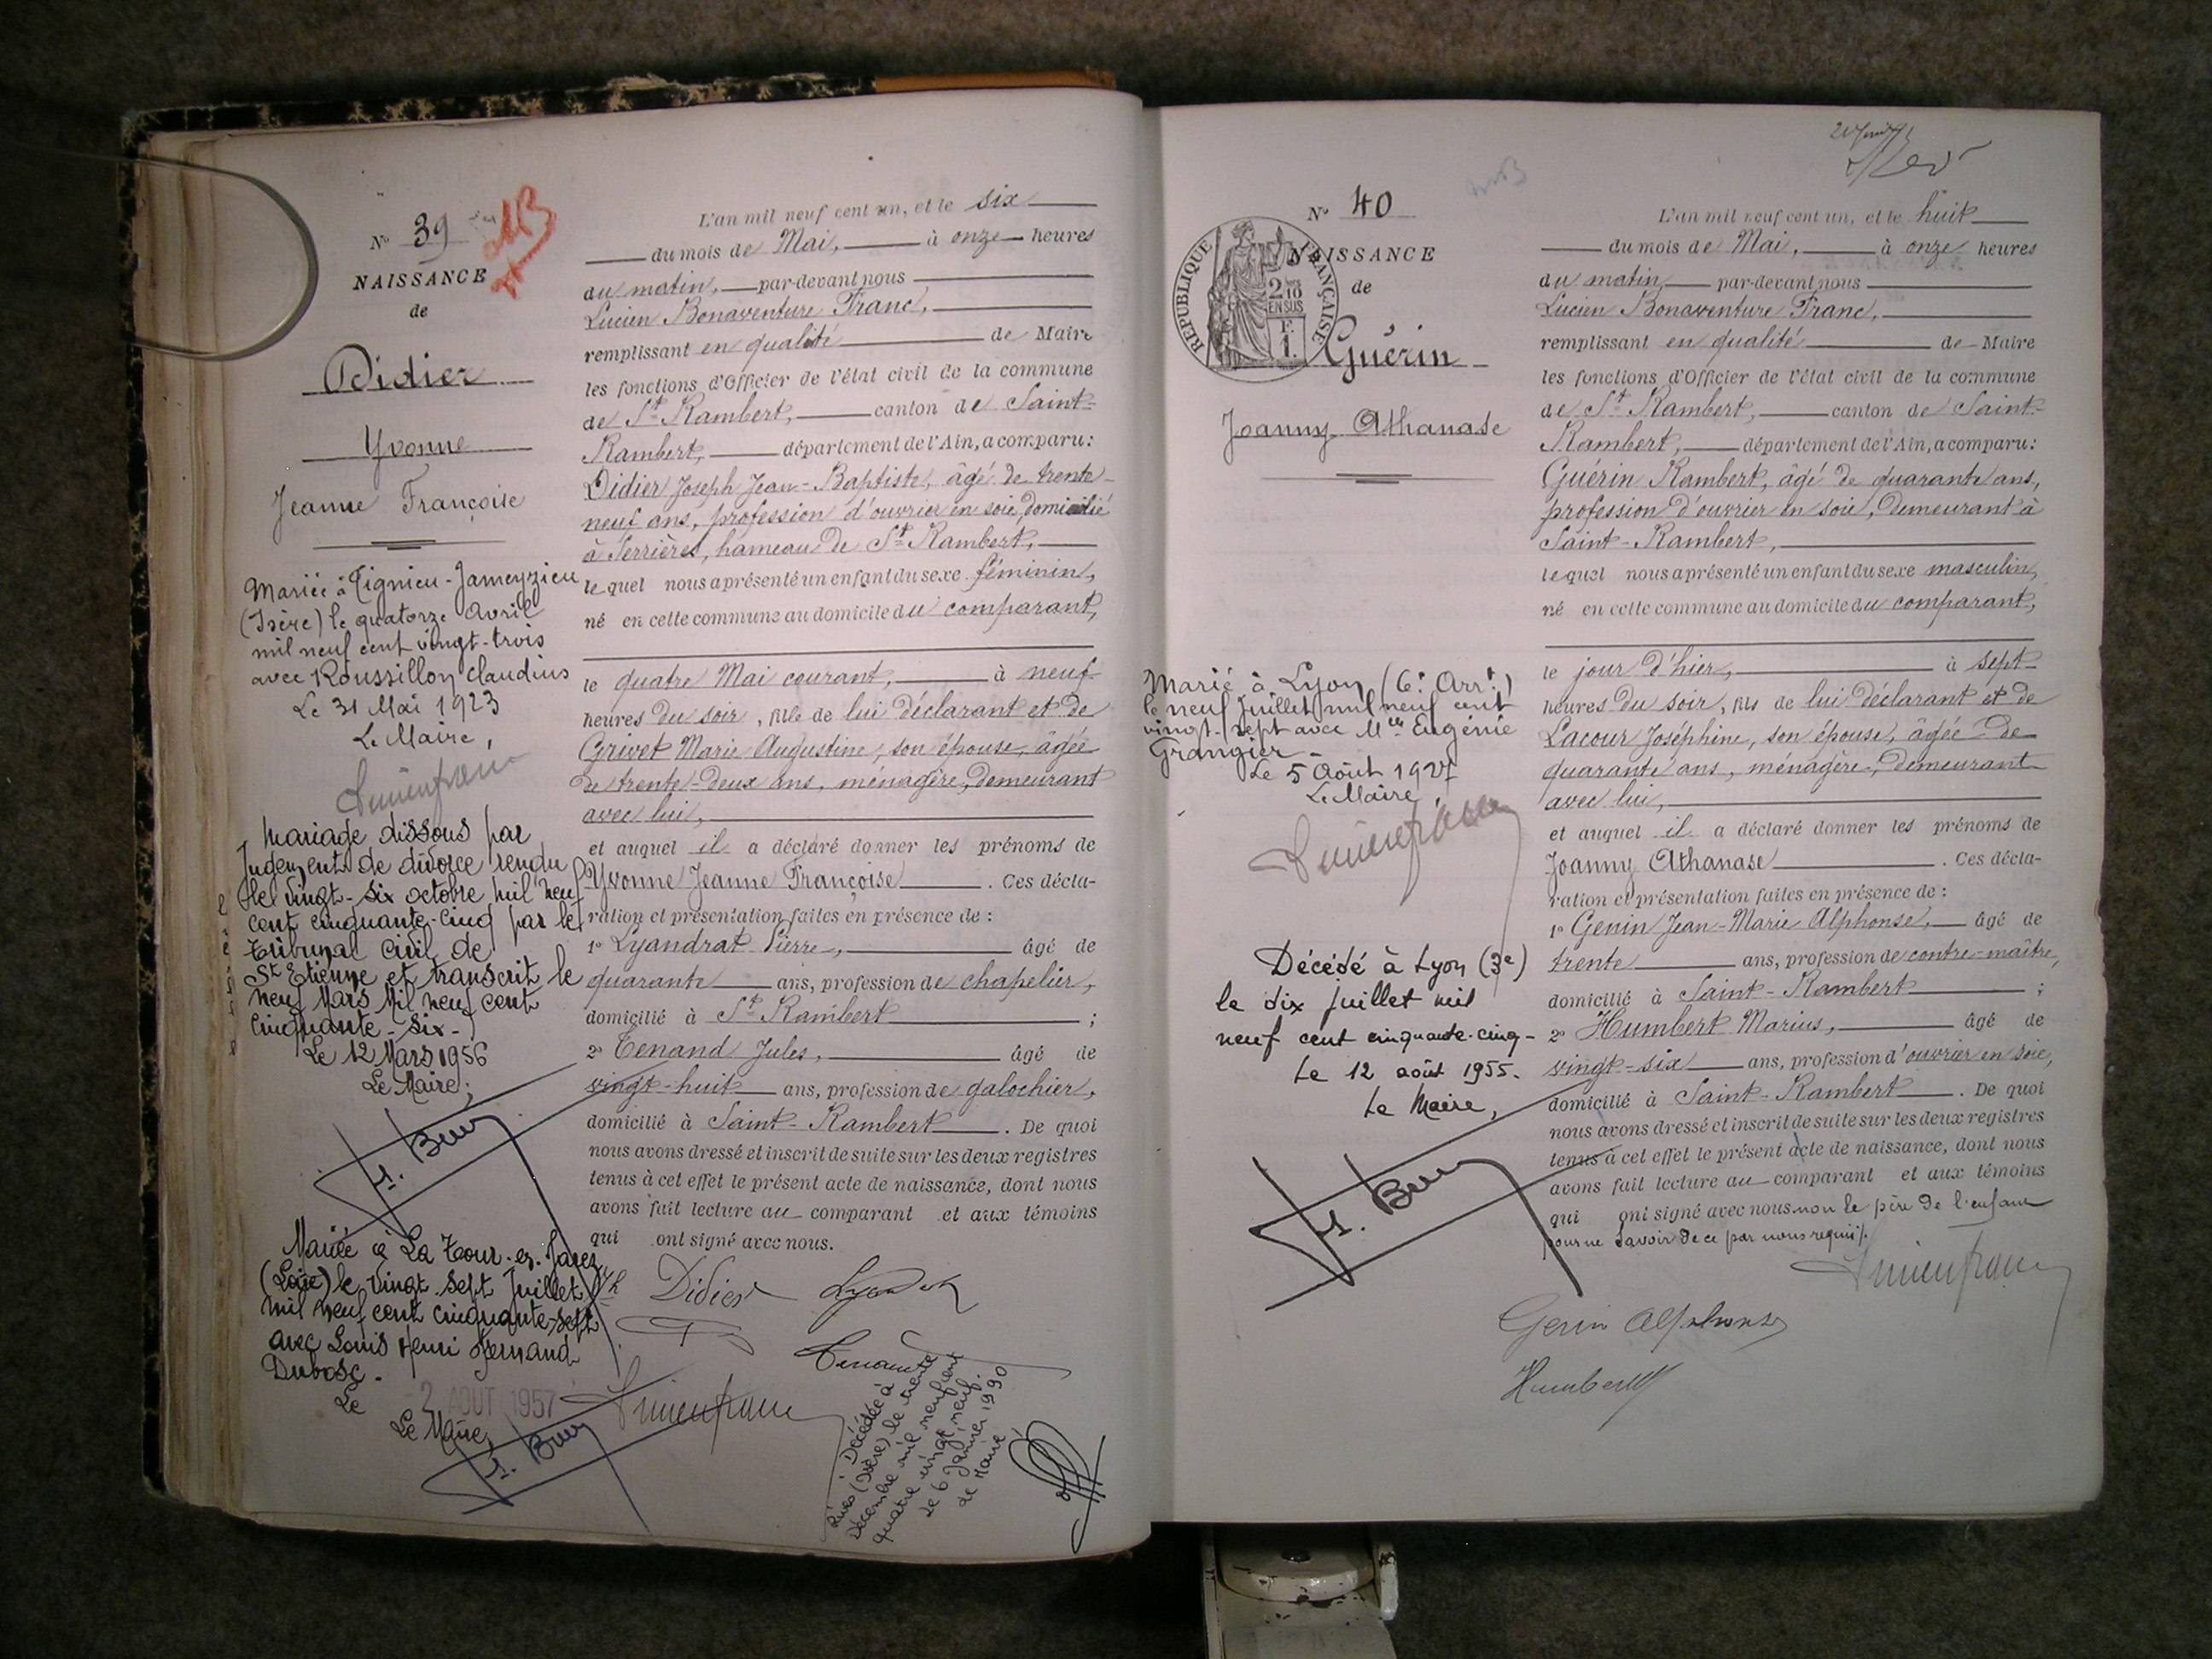 N° 39
NAISSANCE
de
Didier
Yvonne
Jeanne Françoise
Mariée à Tignieu-Jameyzieu
(Isère) le quatorze avril
mil neuf cent vingt-trois
avec Roussillon Claudius
Le 31 Mai 1923
Le Maire,
Mariage dissous par
Jugement de divorce rendu
le vingt-six octobre mil neuf
cent cinquante-cinq par le
Tribunal Civil de
St Etienne et transcrit le
neuf Mars Mil neuf cent
Cinquante-six-
Le 12 Mars 1956
Le Maire;
Mariée à La Tour-en-Jarez
(Loire) le vingt-sept Juillet
mil neuf cent cinquante-sept
avec Louis Henri Fernand
Dubosc.
Le -2 AOUT 1957
Le Maire,
L'an mil neuf cent un, et le six
du mois de Mai, à onze heures
du matin, par-devant nous
Lucien Bonaventure Franc,
remplissant en qualité de Maire
les fonctions d'Officier de l'état civil de la commune
de St Rambert, canton de Saint-
Rambert, département de l'Ain, a comparu:
Didier Joseph Jean-Baptiste, âgé de trente-
neuf ans, profession d'ouvrier en soie, domicilié
à Serrières, hameau de St Rambert,
lequel nous a présenté un enfant du sexe féminin,
né en cette commune au domicile du comparant,
le quatre Mai courant, à neuf
heures du soir, fille de lui déclarant et de
Grivet Marie Augustine, son épouse, âgée
de trente-deux ans, ménagère, demeurant
avec lui,
et auquel il a déclaré donner les prénoms de
Yvonne Jeanne Françoise. Ces décla-
ration et présentation faites en présence de :
1° Lyandrat Pierre, âgé de
quarante ans, profession de chapelier,
domicilié à St Rambert ;
2° Tenand Jules, âgé de
vingt-huit ans, profession de galochier,
domicilié à Saint-Rambert. De quoi
nous avons dressé et inscrit de suite sur les deux registres
tenus à cet effet le présent acte de naissance, dont nous
avons fait lecture au comparant et aux témoins
qui ont signé avec nous.
Didier
Tenand
Décédée à
Rives (Isère), le trente
Décembre mil neuf cent
quatre vingt neuf.
Le 6 Janvier 1990
Le Maire
N° 40
NAISSANCE
de
REPUBLIQUE FRANÇAISE
2/10
EN SUS
F.
1.
Guérin
Joanny Athanase
Marié à Lyon (6e Arrt)
le neuf Juillet mil neuf cent
vingt-sept avec Mlle Eugénie
Grangier
Le 5 Août 1927
Le Maire,
Décédé à Lyon (3e)
le dix juillet mil
neuf cent cinquante-cinq-
Le 12 août 1955.
Le Maire,
L'an mil neuf cent un, et le huit
du mois de Mai, à onze heures
du matin, par-devant nous
Lucien Bonaventure Franc,
remplissant en qualité de Maire
les fonctions d'Officier de l'état civil de la commune
de St Rambert, canton de Saint-
Rambert, département de l'Ain, a comparu:
Guérin Rambert, âgé de quarante ans,
profession d'ouvrier en soie, demeurant à
Saint-Rambert,
lequel nous a présenté un enfant du sexe masculin,
né en cette commune au domicile du comparant,
le jour d'hier, à sept
heures du soir, fils de lui déclarant et de
Lacour Joséphine, son épouse, âgée de
quarante ans, ménagère, demeurant
avec lui,
et auquel il a déclaré donner les prénoms de
Joanny Athanase. Ces décla-
ration et présentation faites en présence de :
1° Genin Jean-Marie Alphonse, âgé de
trente ans, profession de contre-maître,
domicilié à Saint-Rambert ;
2° Humbert Marius, âgé de
vingt-six ans, profession d'ouvrier en soie,
domicilié à Saint-Rambert. De quoi
nous avons dressé et inscrit de suite sur les deux registres
tenus à cet effet le présent acte de naissance, dont nous
avons fait lecture au comparant et aux témoins
qui ont signé avec nous non le père de l'enfant
pour ne savoir de ce par nous requis/.
Genin Alphonse
Humbert